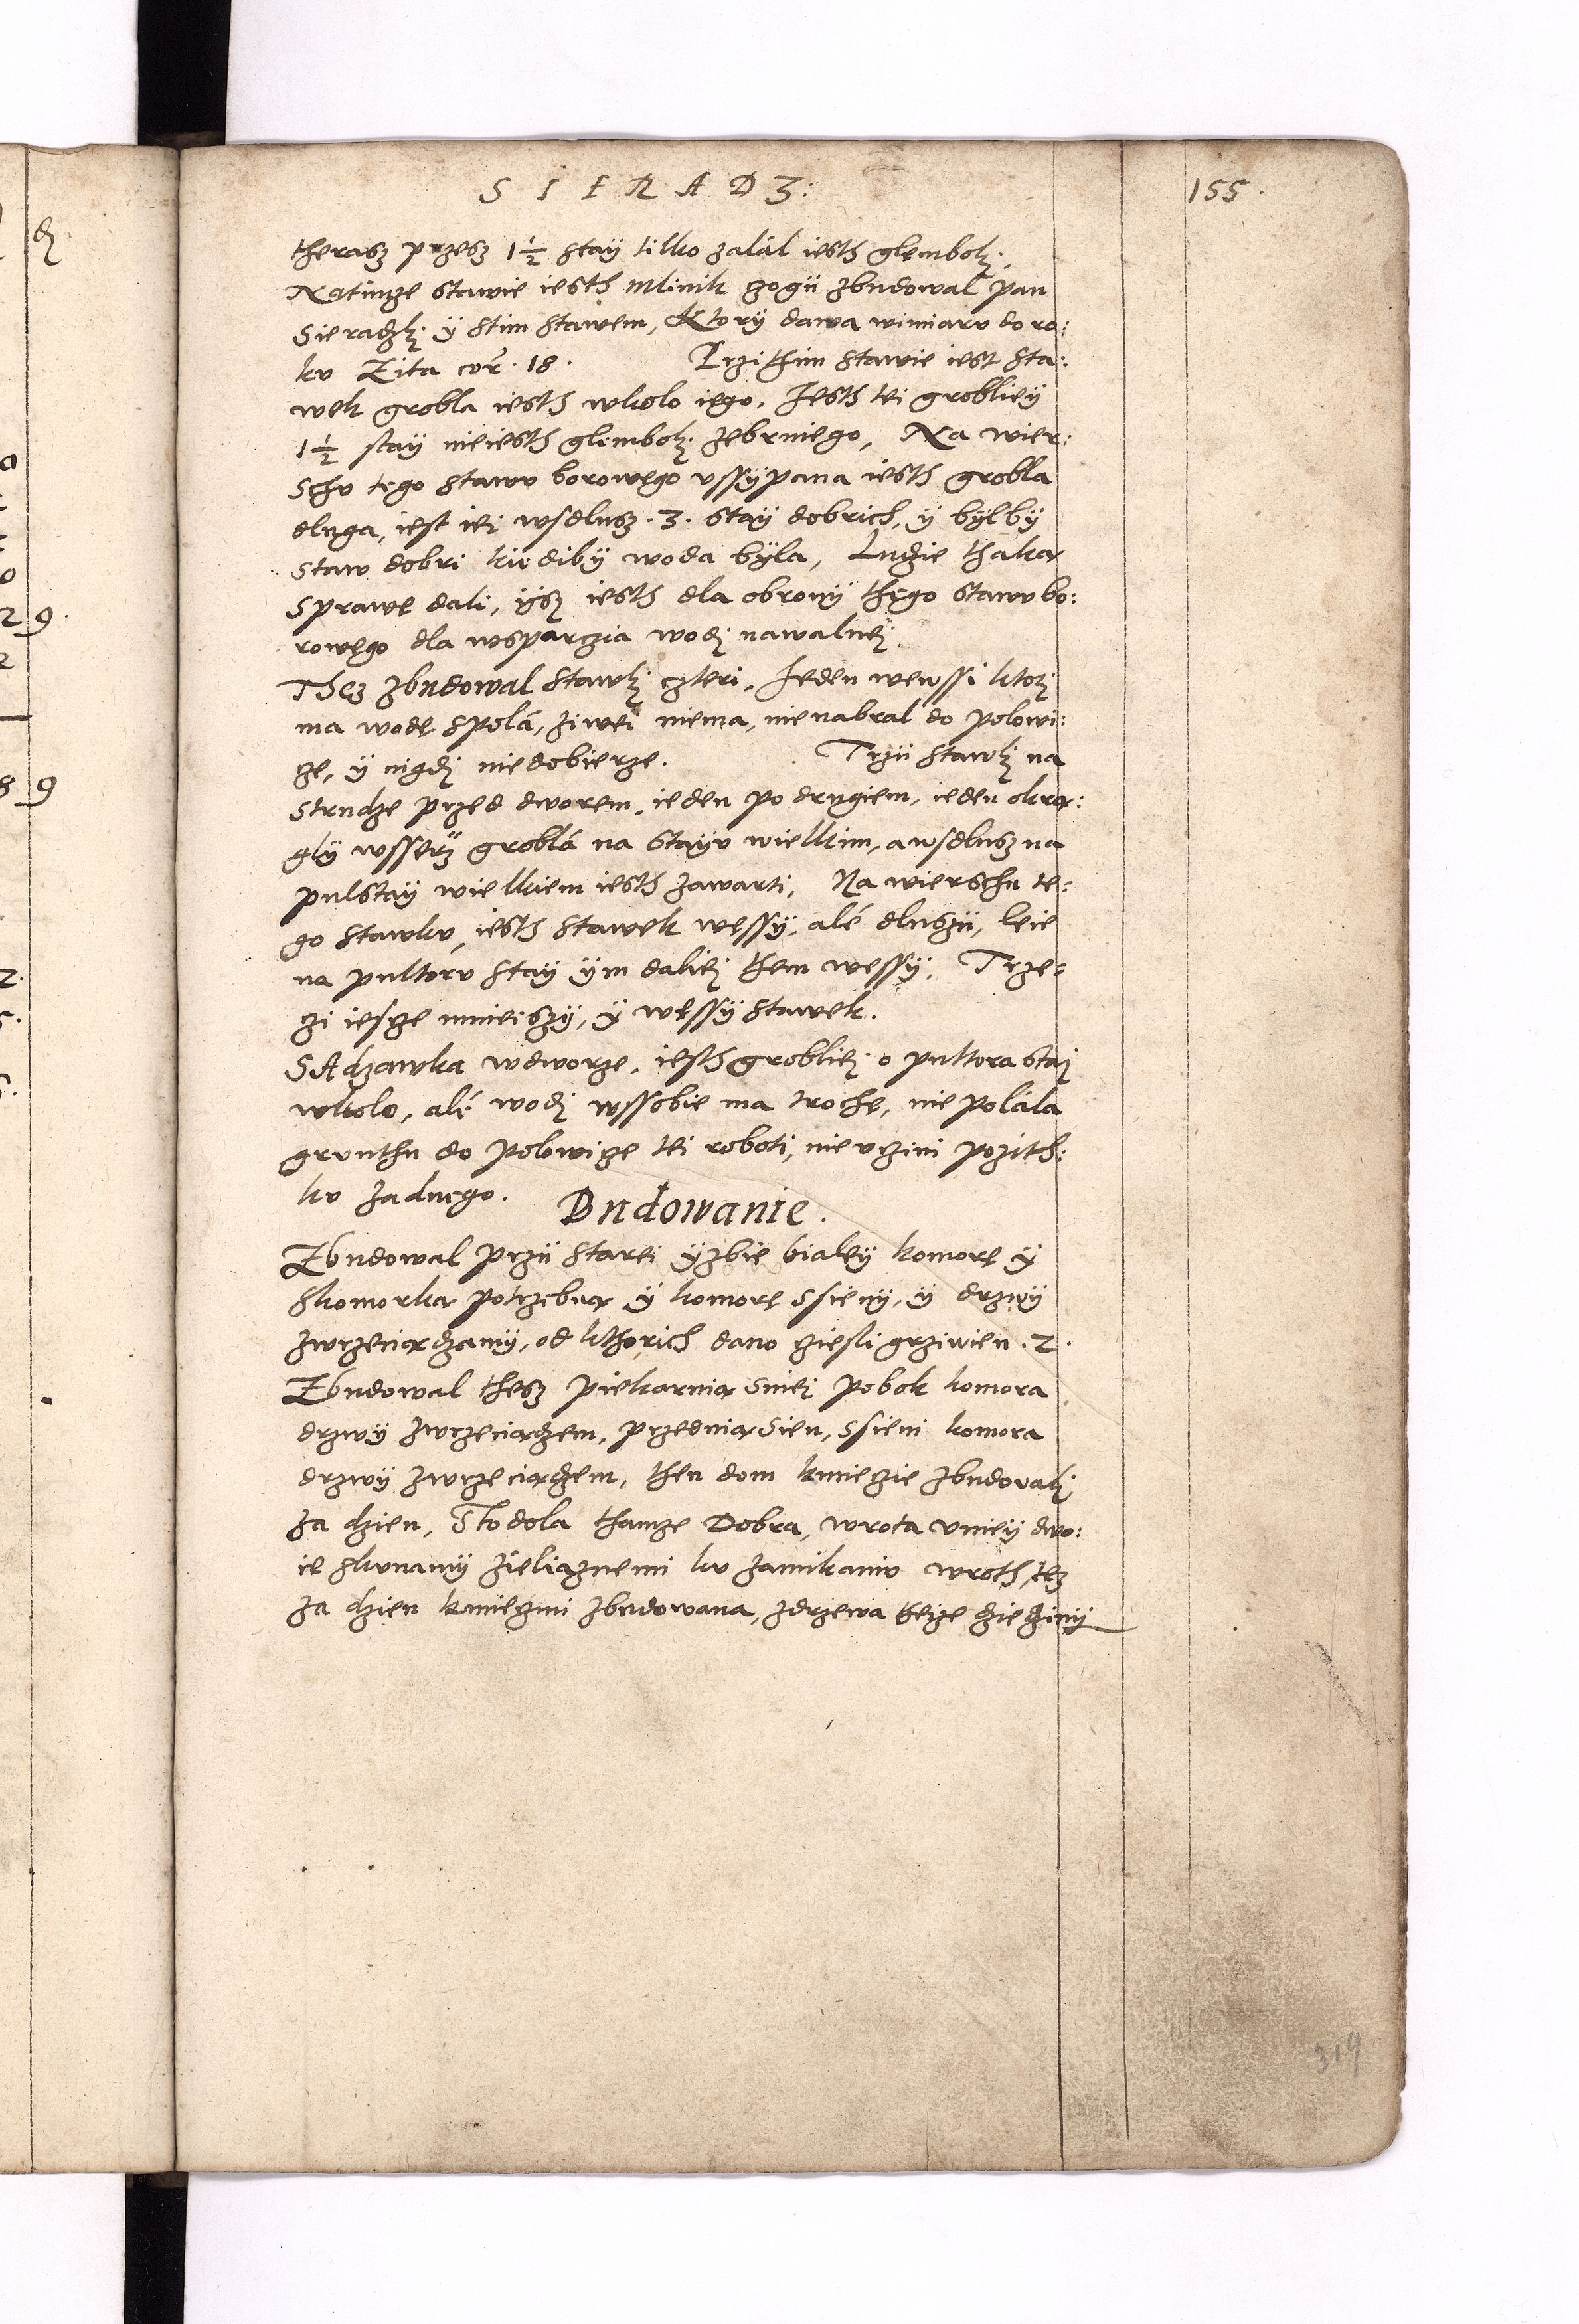 SIERADZ:
155.
therasz przesz 1½ staÿ tilko zalál iesth glembokj.
Natimze stawie iesth mlinik czogü zbudowal pan
Sieradzkj ÿ stim stawem, Ktorÿ dawa wimiaru do ro:
ku Zita cor. 18. Przi thim stawie iest sta:
wek grobla iesth wkolo iego, Jesth tei grobliey
1½ staÿ nieiesth glembokj zebrniego, Na wier:
schu tego stawu borowego vssÿpana iesth grobla
dluga, iest iej wsdlusz .3. staÿ dobrich, ÿ bÿlbÿ
staw dobri kiedibÿ woda bÿla, Ludzie thaka
sprawe dali, ÿsz iesth dla obronÿ thego stawu bo:
rowego dla wsparczia wodj nawalnej.
Thez zbudowal stawkj czteri, Jeden wewssi ktorj
ma wode spolá, ziwei niema, nienabral do polowi:
cze, ÿ nigdj niedobierze. Trzü stawkj na
strudze przed dworem, ieden po drugiem, ieden okra:
glÿ wsserz groblá na staÿu wielkim, awsdlusz na
pulstaÿ wielkiem iesth zawarti, Na wierschu te:
go stawku, iesth stawek wessÿ, alé dluszü, leie
na pultoru staÿ ÿm daliej them wessÿ, Trze:
czi iescze mnieiszÿ, ÿ wessÿ stawek.
SAdzawka wdworze, iesth grobliej o pultora staj
wkolo, alé wodj wssobie ma troche, nie polála
grunthu do polowicze tei roboti, nie vczini pozith:
ku zadnego. Budowanie.
Zbudowal przü starei ÿzbie bialeÿ komore ÿ
skomorka potrzebna ÿ komore ssienÿ, ÿ drzwÿ
zwrzeciadzamÿ, od kthorich dano ciesli grziwien .2.
Zbudowal thesz piekarnia sniej pobok komora
drzwÿ zwrzeciadzem, przednia sien, ssieni komora
drzwÿ zwrzeciadzem, then dom kmiecie zbudovalj
za dzien, Stodola thamze Dobra, wrota vnieÿ dwo:
ie skunamÿ zieliaznemi ku zamikaniu wroth, tez
za dzien kmieczmi zbudowana, zdrzewa teize dziedzinÿ
319